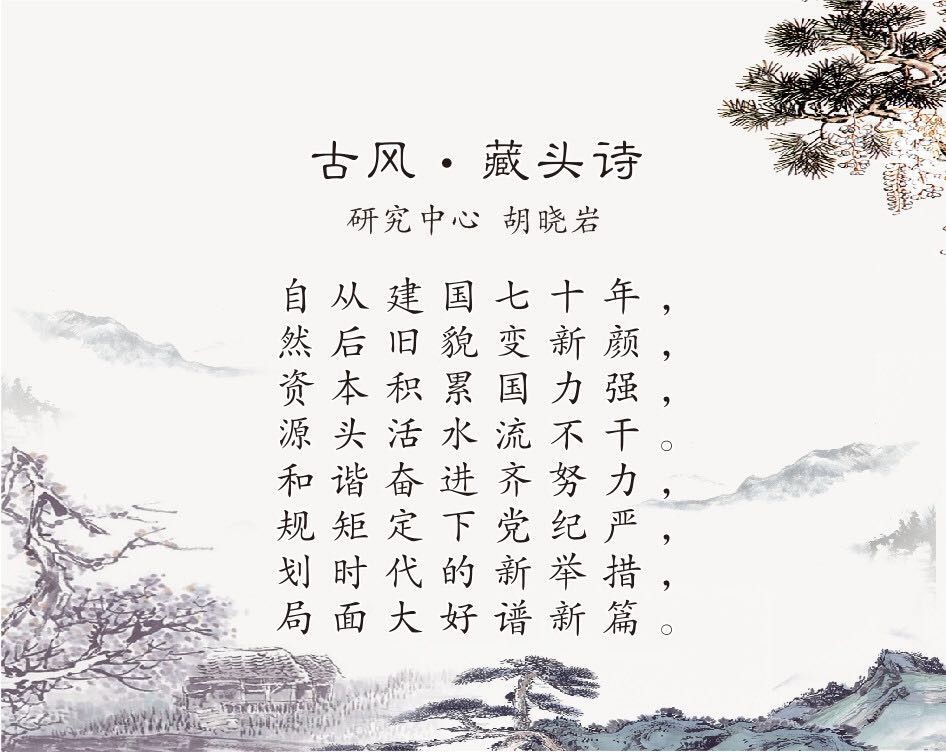 古风·藏头诗
研究中心 胡晓岩
自从建国七十年，
然后旧貌变新颜，
资本积累国力强，
源头活水流不干。
和谐奋进齐努力，
规矩定下党纪严，
划时代的新举措，
局面大好谱新篇。